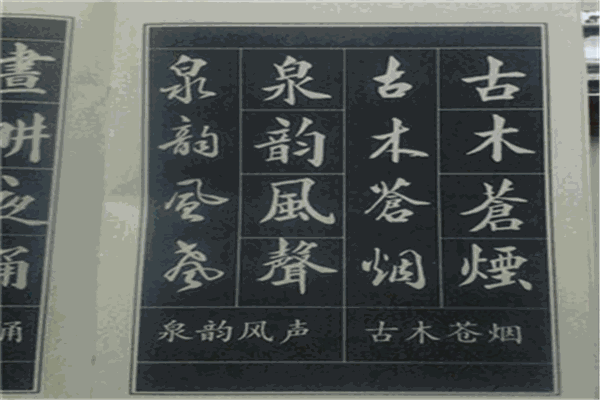 古木蒼煙
古木蒼烟
泉韵風聲
泉韵風声
古木苍烟
泉韵风声
晝